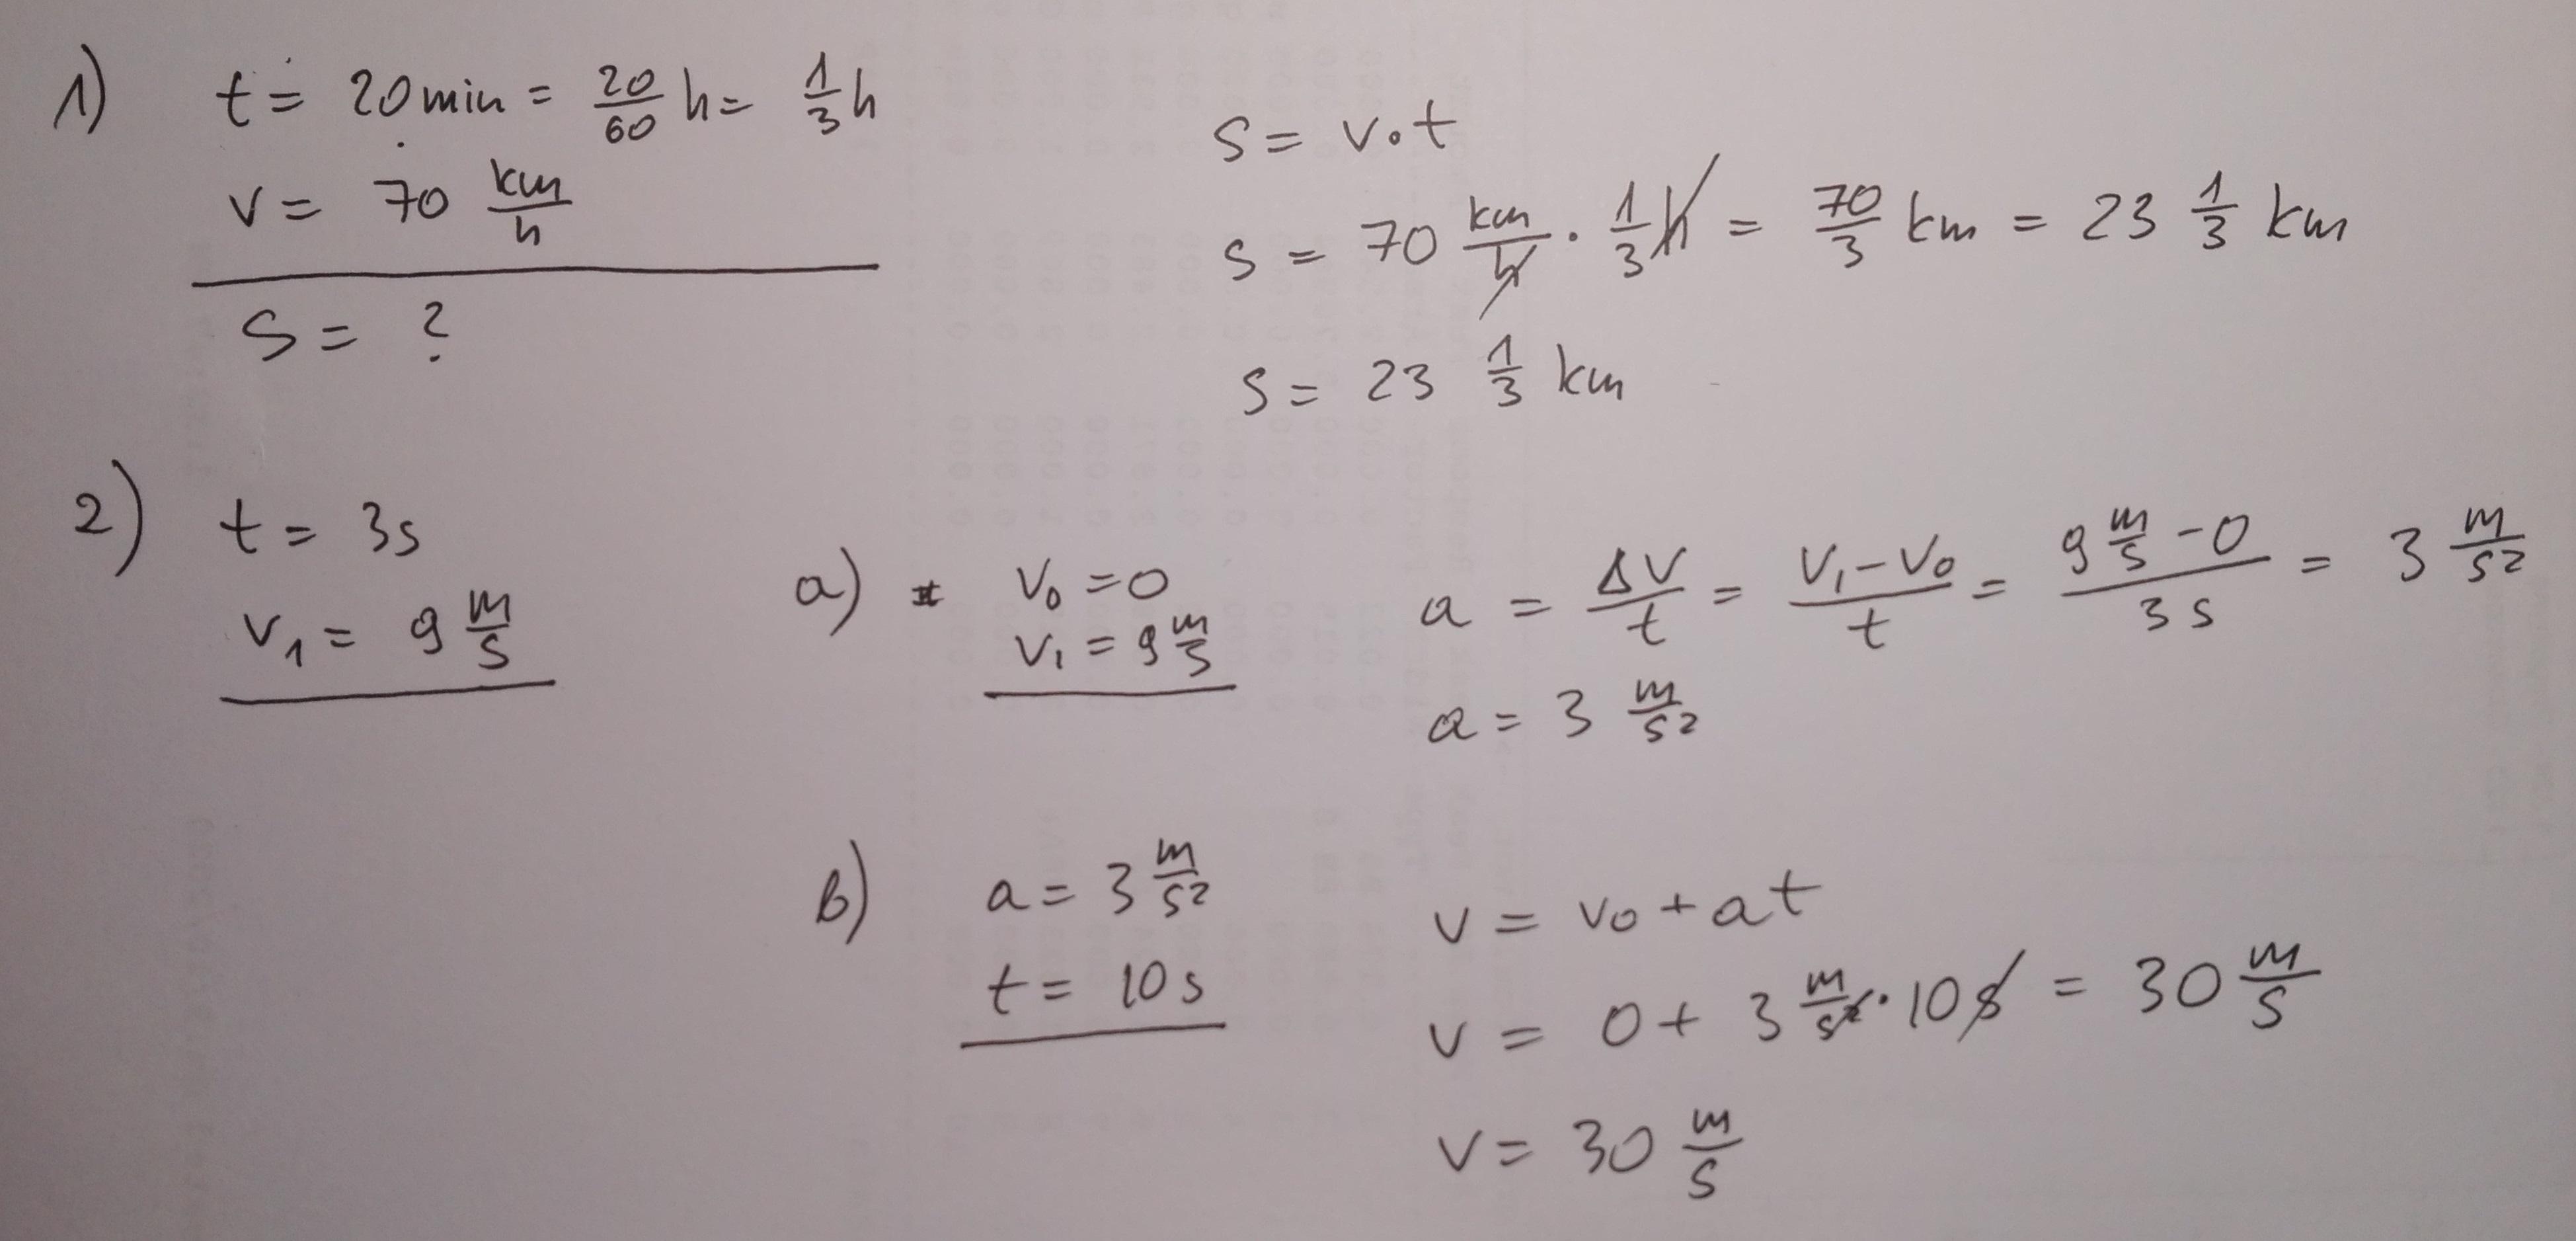 1) t = 20 min = 20/60 h = 1/3 h
v = 70 km/h
s = ?
s = v·t
s = 70 km/h · 1/3 h = 70/3 km = 23 1/3 km
s = 23 1/3 km
2) t = 3s
v₁ = 9 m/s
a) v₀ = 0
v₁ = 9 m/s
a = Δv/t = (v₁ - v₀)/t = (9 m/s - 0)/3s = 3 m/s²
a = 3 m/s²
b) a = 3 m/s²
t = 10 s
v = v₀ + at
v = 0 + 3 m/s² · 10 s = 30 m/s
v = 30 m/s